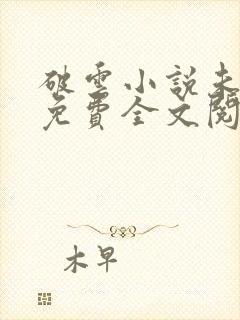 破雲小説未
免費全文閱
木早